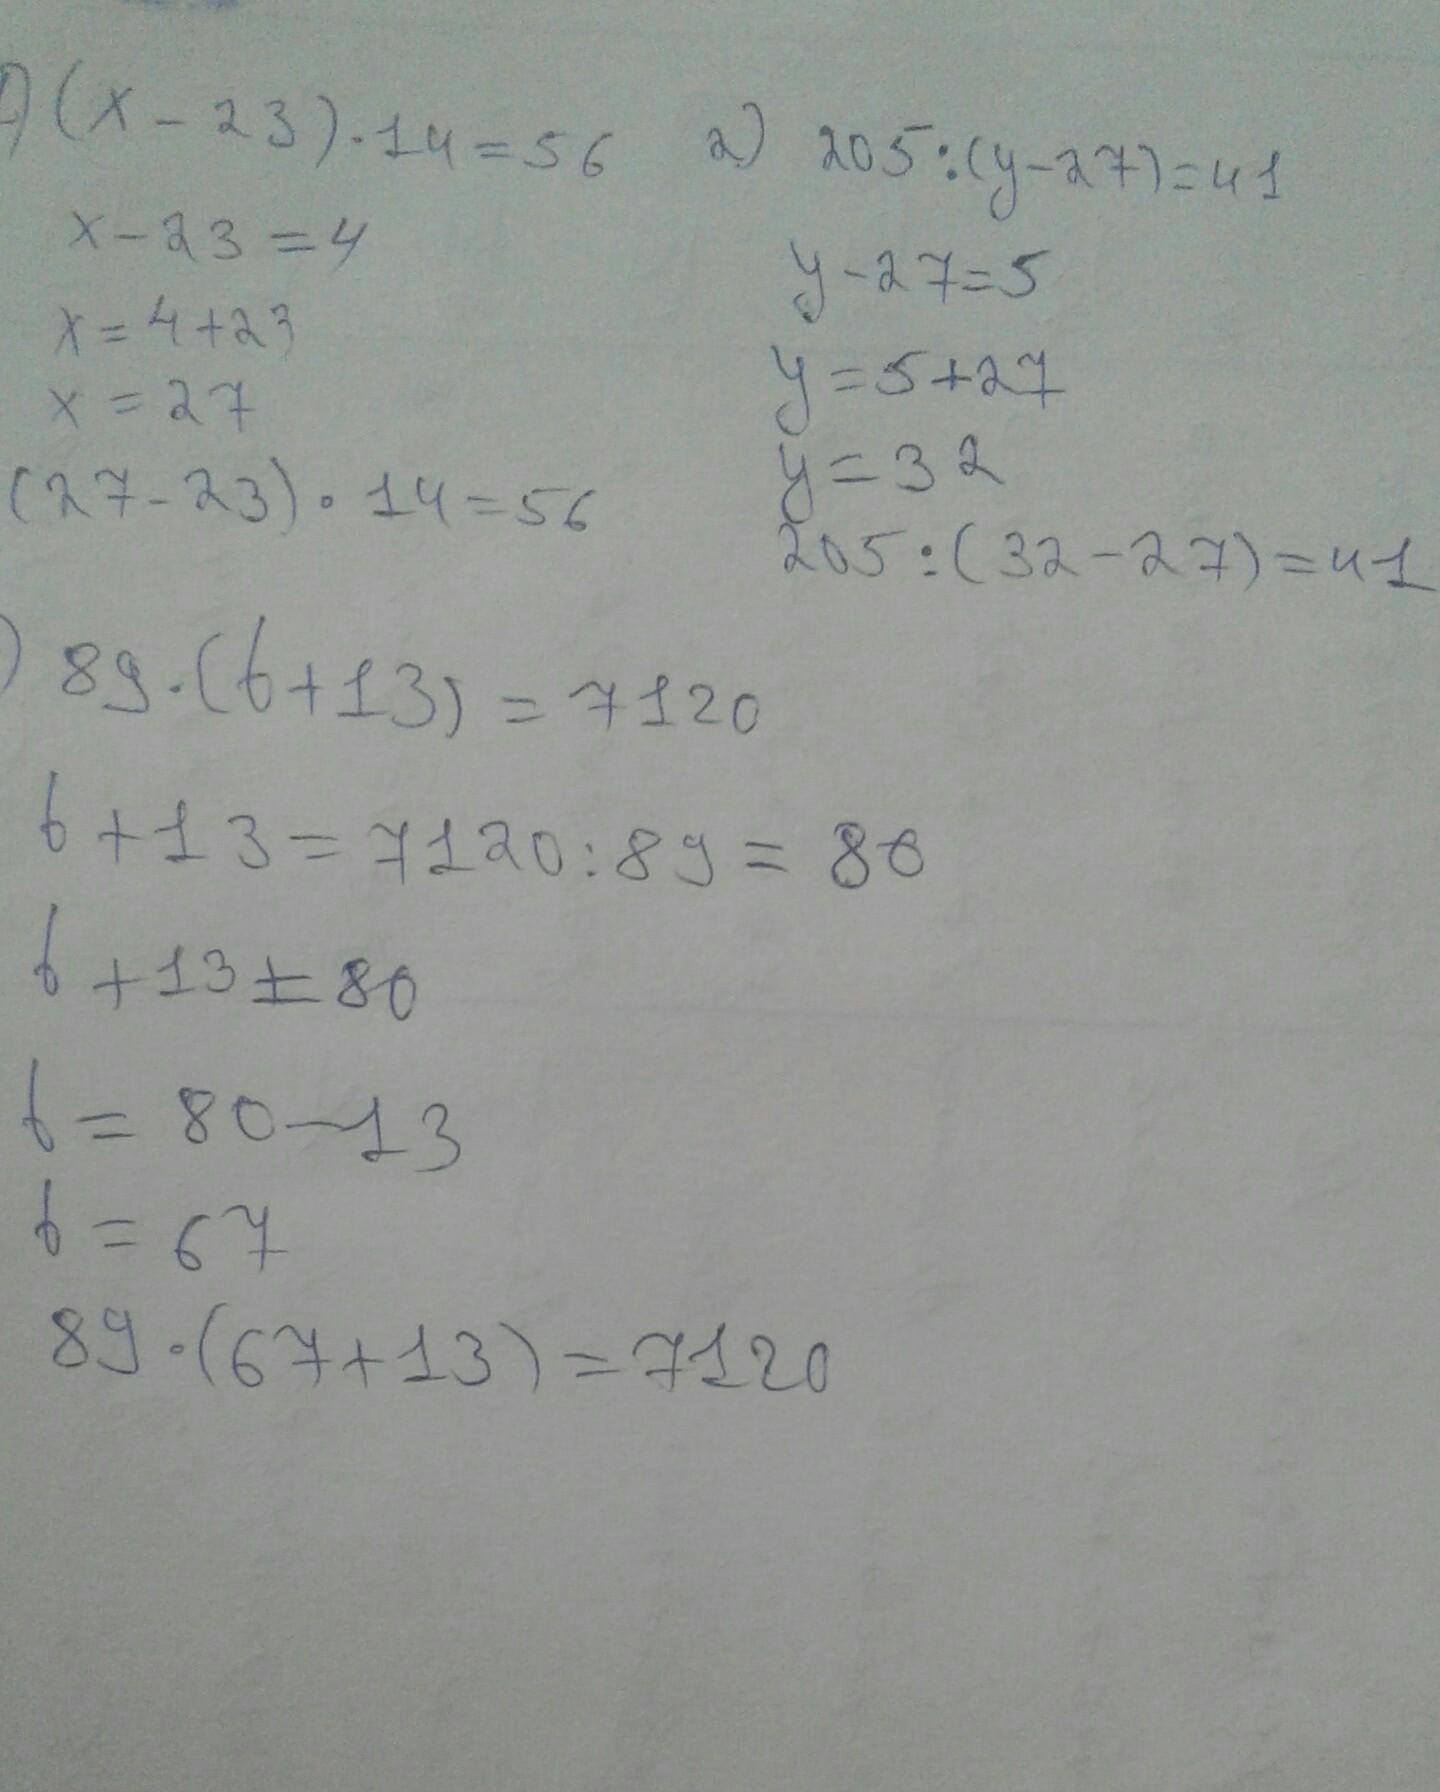 1) (x - 23) · 14 = 56
x - 23 = 4
x = 4 + 23
x = 27
(27 - 23) · 14 = 56
2) 205 : (y - 27) = 41
y - 27 = 5
y = 5 + 27
y = 32
205 : (32 - 27) = 41
) 89 · (b + 13) = 7120
b + 13 = 7120 : 89 = 80
b + 13 = 80
b = 80 - 13
b = 67
89 · (67 + 13) = 7120